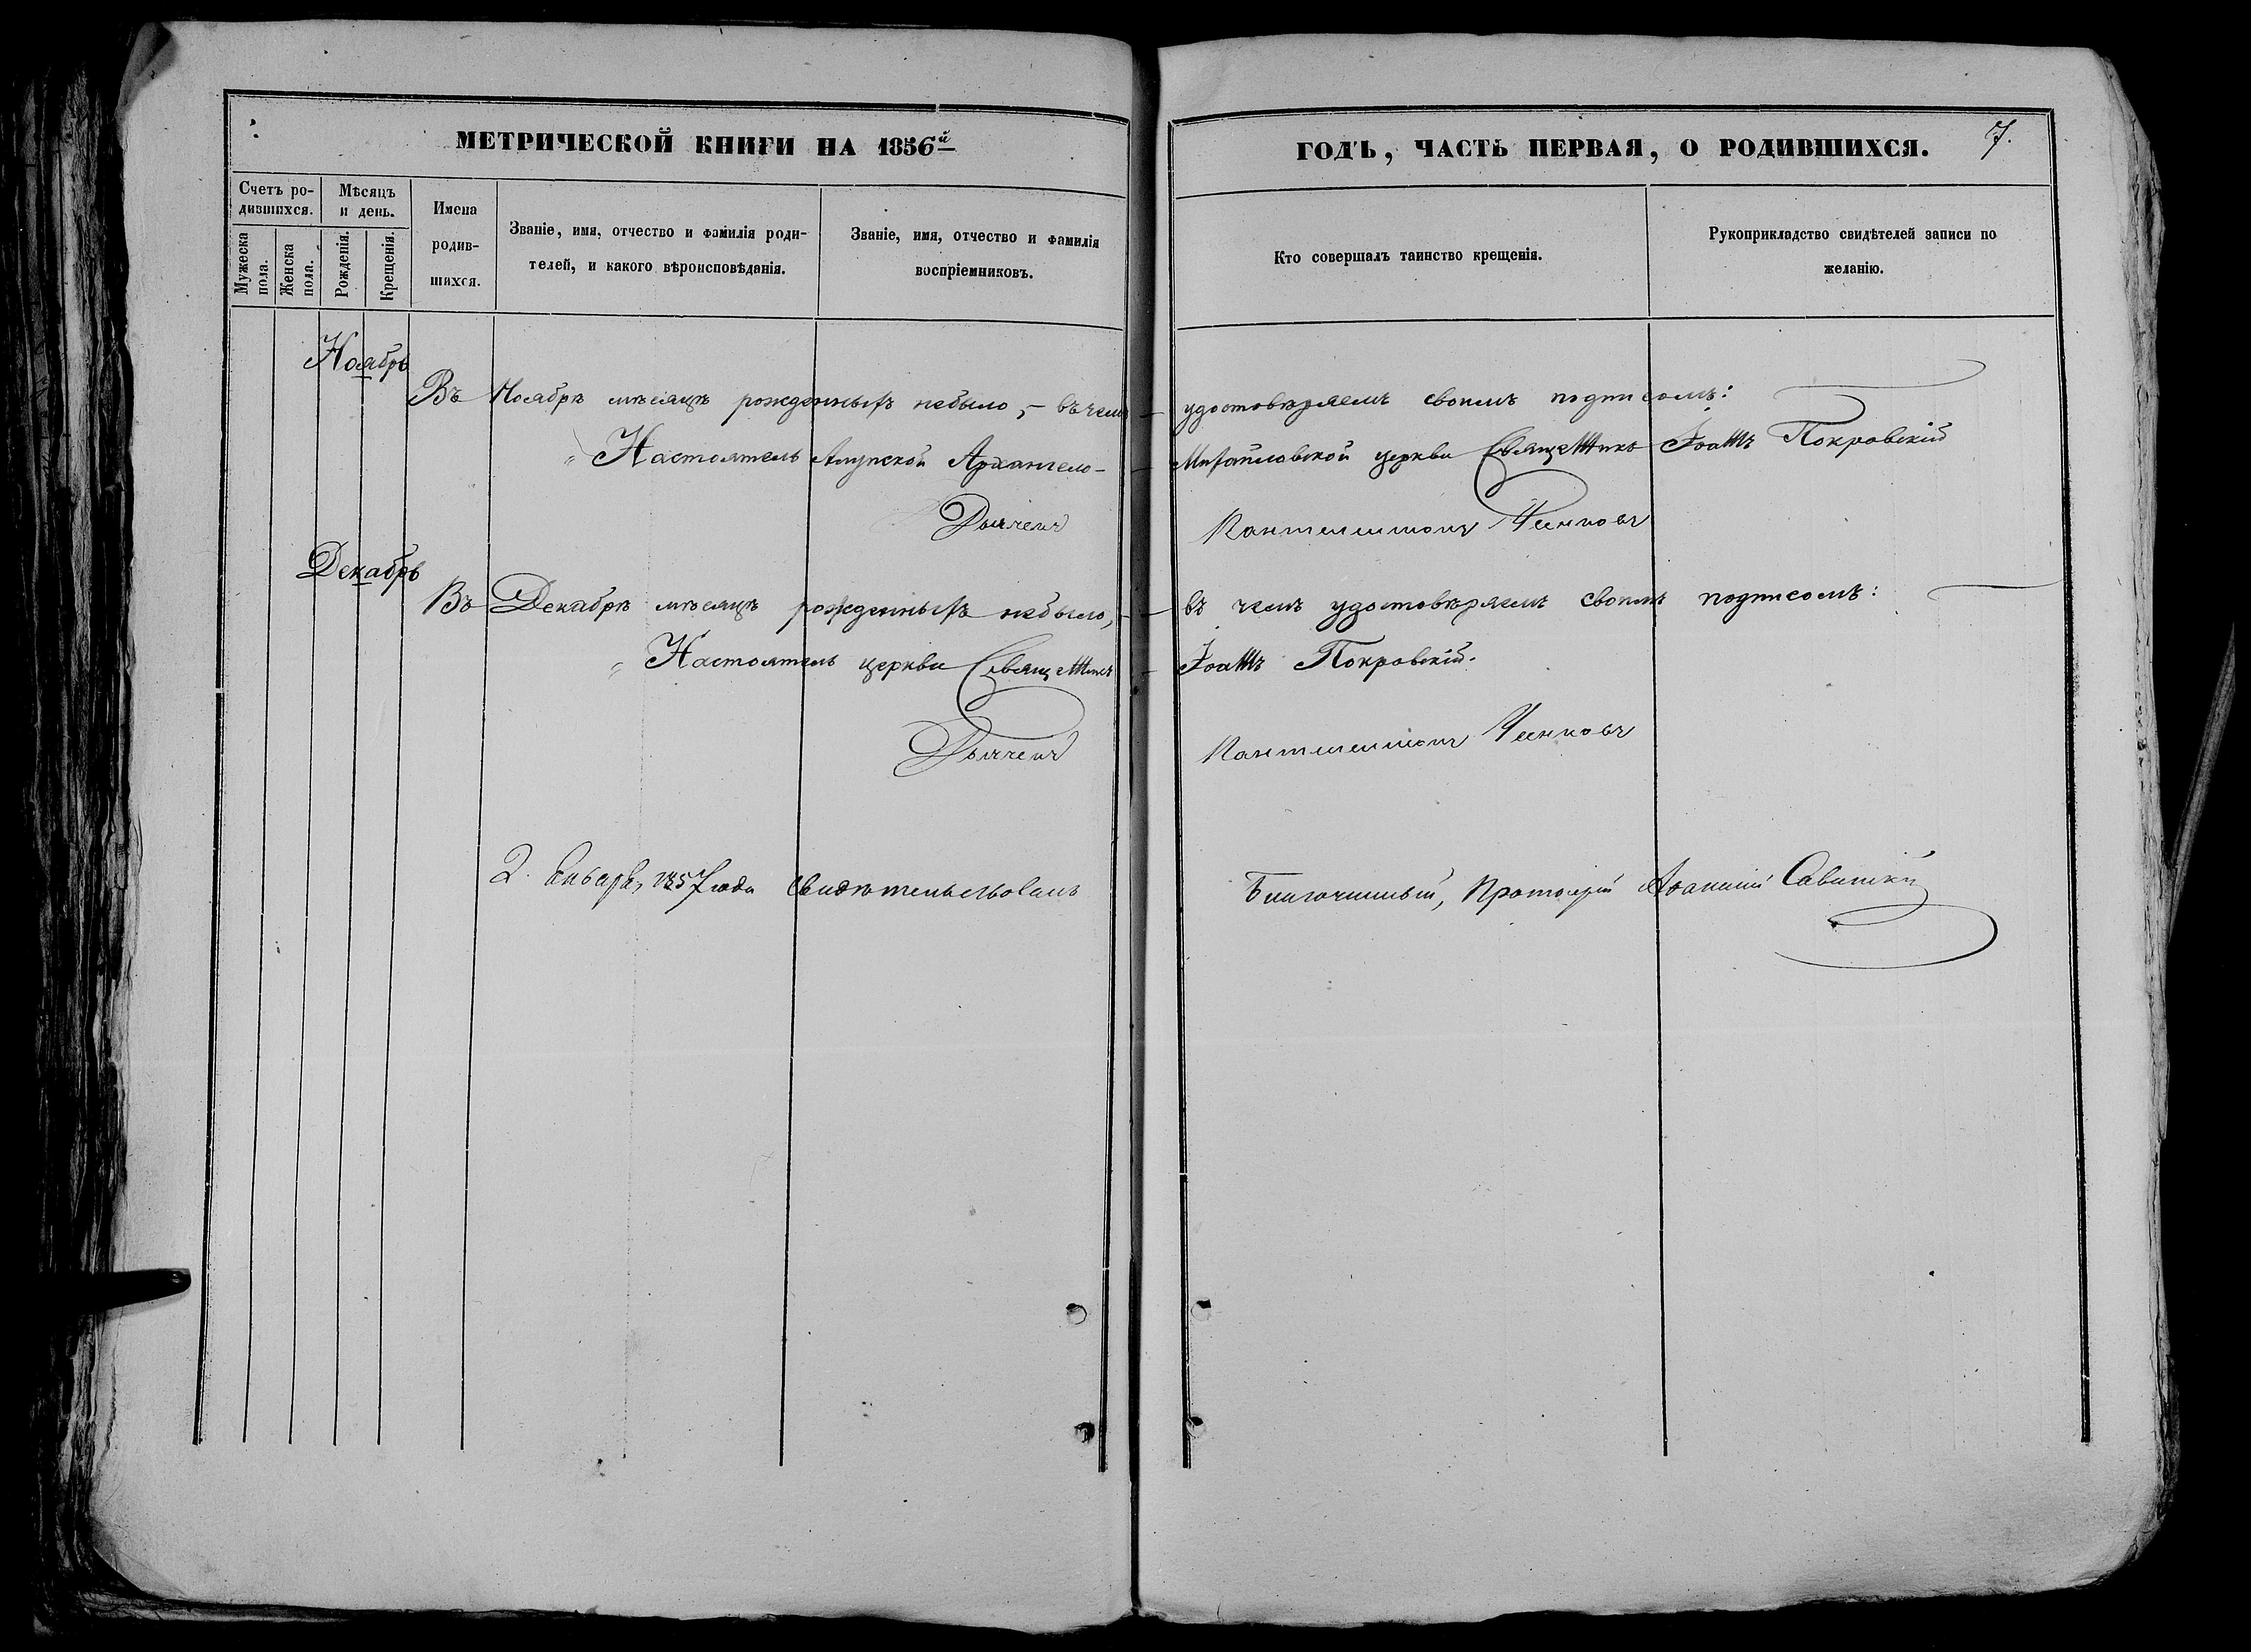 МЕТРИЧЕСКОЙ КНИГИ НА 1856й ГОДЪ, ЧАСТЬ ПЕРВАЯ, О РОДИВШИХСЯ. 7.
Счетъ ро-
дившихся.
Мужеска
пола.
Женска
пола.
Мѣсяцъ
и день.
Рожденія.
Крещенія.
Имена
родив-
шихся.
Званіе, имя, отчество и фамилія роди-
телей, и какого вѣроисповѣданія.
Званіе, имя, отчество и фамилія
воспріемниковъ.
Кто совершалъ таинство крещенія.
Рукоприкладство свидѣтелей записи по
желанію.
Ноябрь
Въ Ноябрѣ мѣсяцѣ рожденныхъ небыло, – въ чемъ – удостовѣряемъ своимъ подписомъ:
Настоятель Алупской Архангело- – Михайловской церкви Священникъ Іоаннъ Покровскій
Дьячекъ
Декабрь
Въ Декабрѣ мѣсяцѣ рожденныхъ небыло, – въ чемъ удостовѣряемъ своимъ подписомъ:
Настоятель церкви Священникъ – Іоаннъ Покровскій.
Дьячекъ
2. Января, 1857 года свидѣтельствовалъ Благочинный, Протоіерей Савицкій